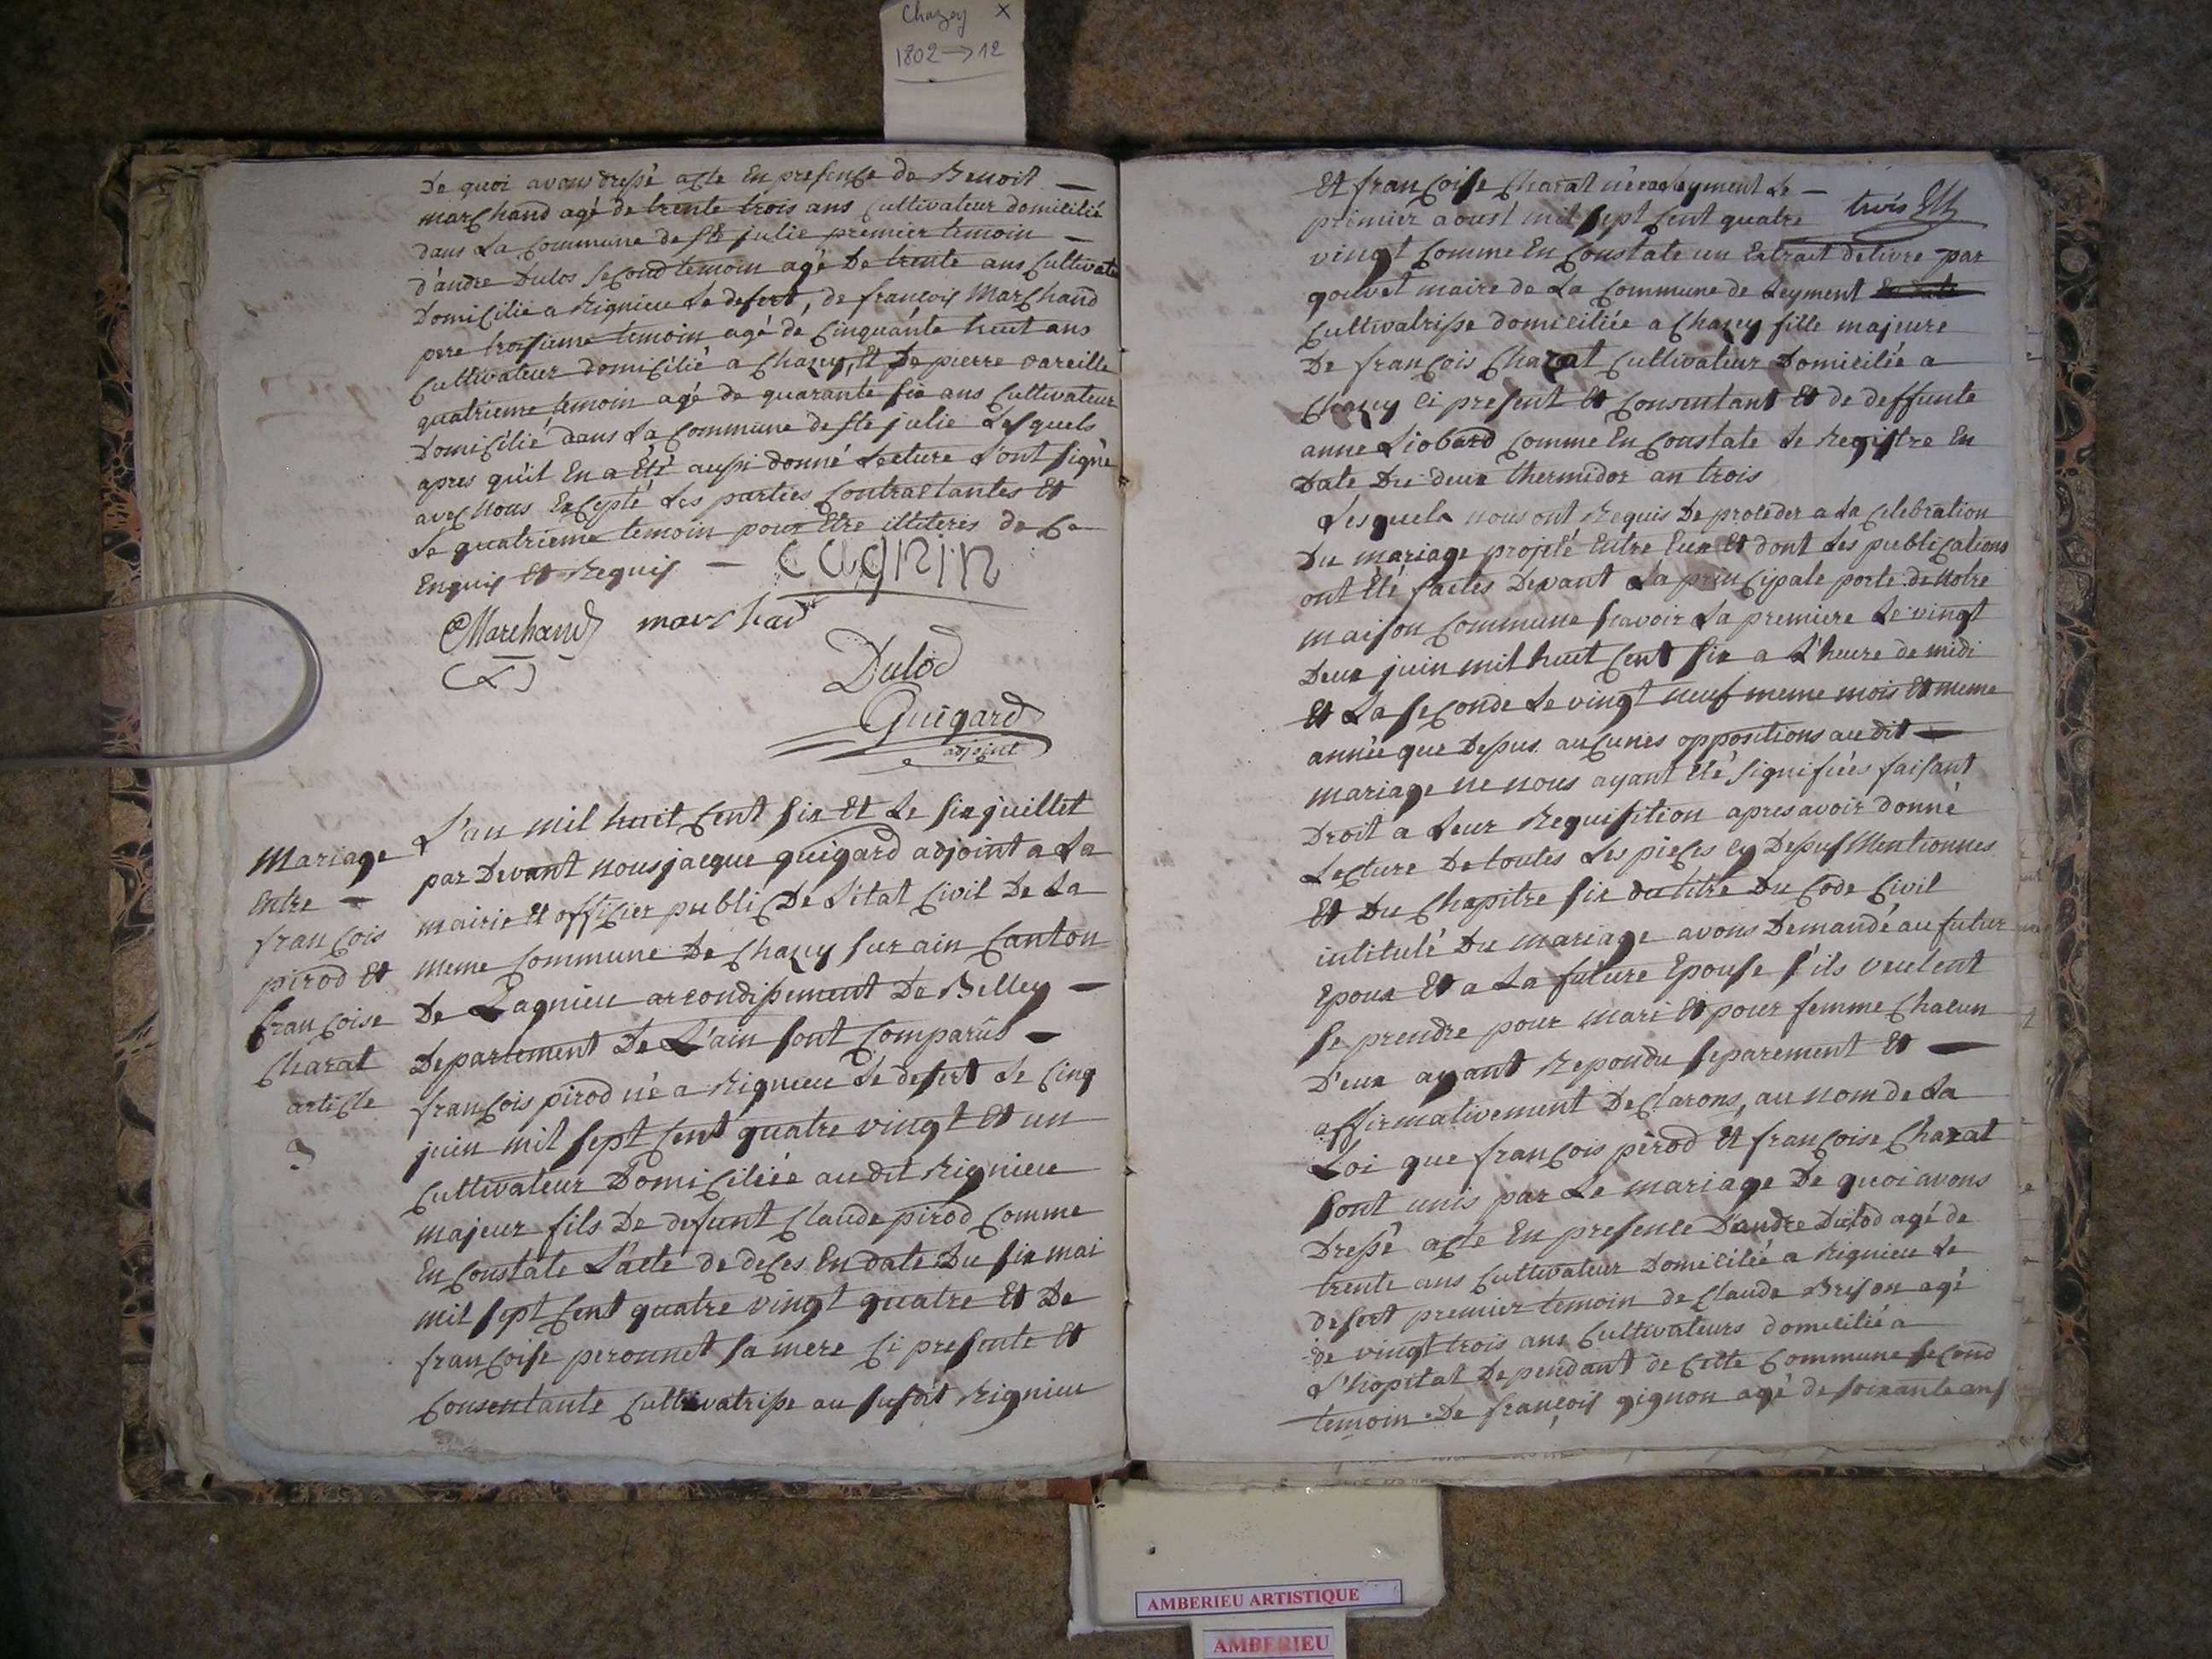 Chazey X
1802 → 12
De quoi avons dressé acte En presence de Benoit —
marchand agé de trente trois ans Cultivateur domicilié
dans La Commune de Ste julie premier temoin —
d'andre Dulos second temoin agé De trente ans Cultivate
Domicilié a Rignieu Le desert, de francois Marchand
pere troisieme temoin agé de Cinquante huit ans
Cultivateur domicilié a Chazey, Et De pierre vareille
quatrieme temoin agé de quarante six ans Cultivateur
Domicilié dans La Commune de Ste julie Lesquels
apres qu'il En a Eté aussi donné Lecture L'ont signé
avec Nous Excepté Les parties Contractantes Et
Le quatrieme temoin pour Etre illiteres de Ce
Enquis Et Requis — cagnin
Marchand marchand
Dulod
Guigard
adjoint
Mariage
Entre —
françois
pirod Et
françoise
Charat
article
3
L'an mil huit Cent six Et Le six juillet
par Devant nous jacque guigard adjoint a La
mairie Et officier public De L'etat Civil De La
meme Commune De Chazey sur ain Canton
De Lagnieu arcondissement De Belley —
Departement De L'ain sont Comparus —
françois pirod né a Rignieu Le desert Le Cinq
juin mil sept Cent quatre vingt Et un
Cultivateur Domiciliée audit Rignieu
majeur fils De defunt Claude pirod Comme
En Constate L'acte de deces En date Du six mai
mil sept Cent quatre vingt quatre Et De
françoise peronnet sa mere Ci presente Et
Consentante Cultivatrisse au susdit Rignieu
Et françoise Charat née a Leyment Le —
premier aoust mil sept Cent quatre trois
vingt Comme En Constate un Extrait delivre par
gouvet maire de La Commune de Leyment
Cultivatrisse domiciliée a Chazey fille majeure
De françois Chazat Cultivateur Domicilié a
Chazey Ci present Et Consentant Et de deffunte
anne Liobard Comme En Constate Le Registre En
Date Du deux thermidor an trois
Lesquels nous ont Requis De proceder a La Celebration
Du mariage projeté Entre Eux Et dont Les publications
ont Eté faites Devant La principale porte de Notre
maison Commune scavoir La premiere Le vingt
Deux juin mil huit Cent six a L'heure de midi
Et La seconde Le vingt neuf meme mois Et meme
année que Dessus aucunes oppositions audit —
mariage ne nous ayant Eté signifiées faisant
Droit a Leur Requisition apres avoir donné
Lecture De toutes Les pieces cy Dessus Mentionnes
Et Du Chapitre six du titre Du Code Civil
intitulé Du mariage avons Demandé au futur
Epoux Et a La future Epouse s'ils veulent
se prendre pour mari Et pour femme Chacun
D'eux ayant Repondu separement Et —
affirmativement Declarons, au nom de La
Loi que françois pirod Et françoise Chazat
sont unis par Le mariage De quoi avons
Dressé acte En presence D'andre Dulod agé de
trente ans Cultivateur Domicilié a Rignieu Le
desert premier temoin de Claude Brison agé
de vingt trois ans Cultivateurs domicilié a
L'hopital Dependant de Cette Commune second
temoin De françois gignon agé de soixante ans
AMBERIEU ARTISTIQUE
AMBERIEU